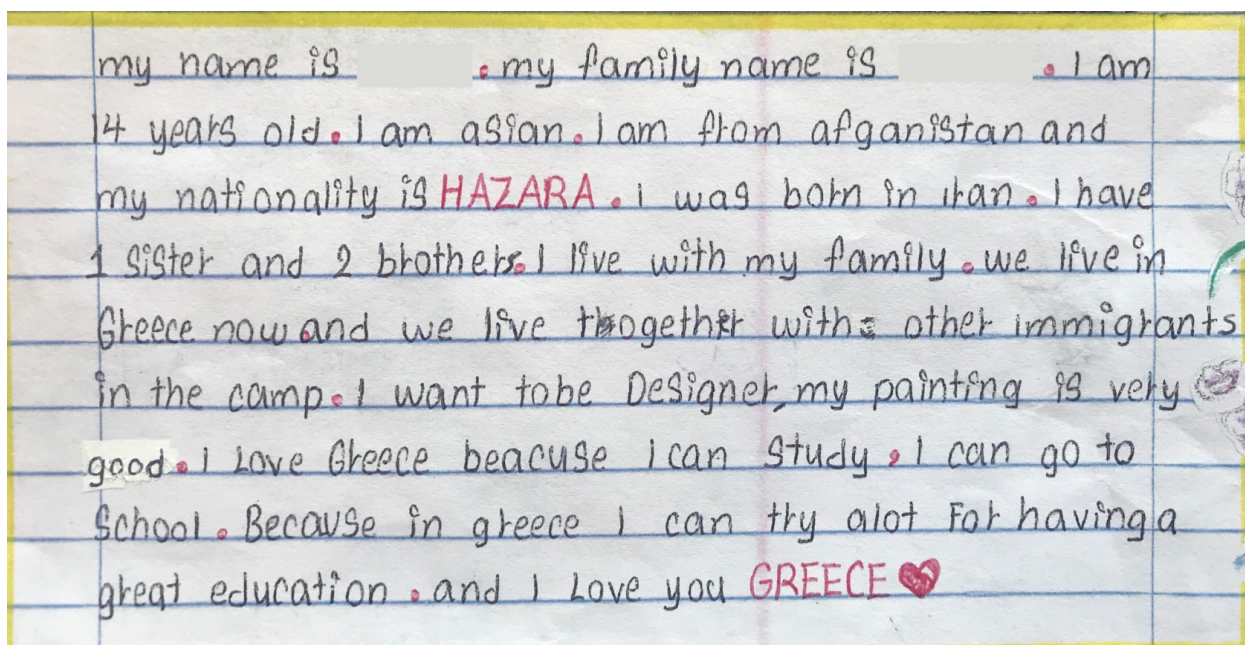 my name is . my family name is . I am
14 years old. I am asian. I am from afganistan and
my nationality is HAZARA. i was born in iran. I have
1 sister and 2 brothers. I live with my family. we live in
Greece now and we live thogether with other immigrants
in the camp. I want tobe Designer, my painting is very
good. I Love Greece beacuse i can study, I can go to
School. Because in greece I can try alot For having a
great education. and I Love you GREECE